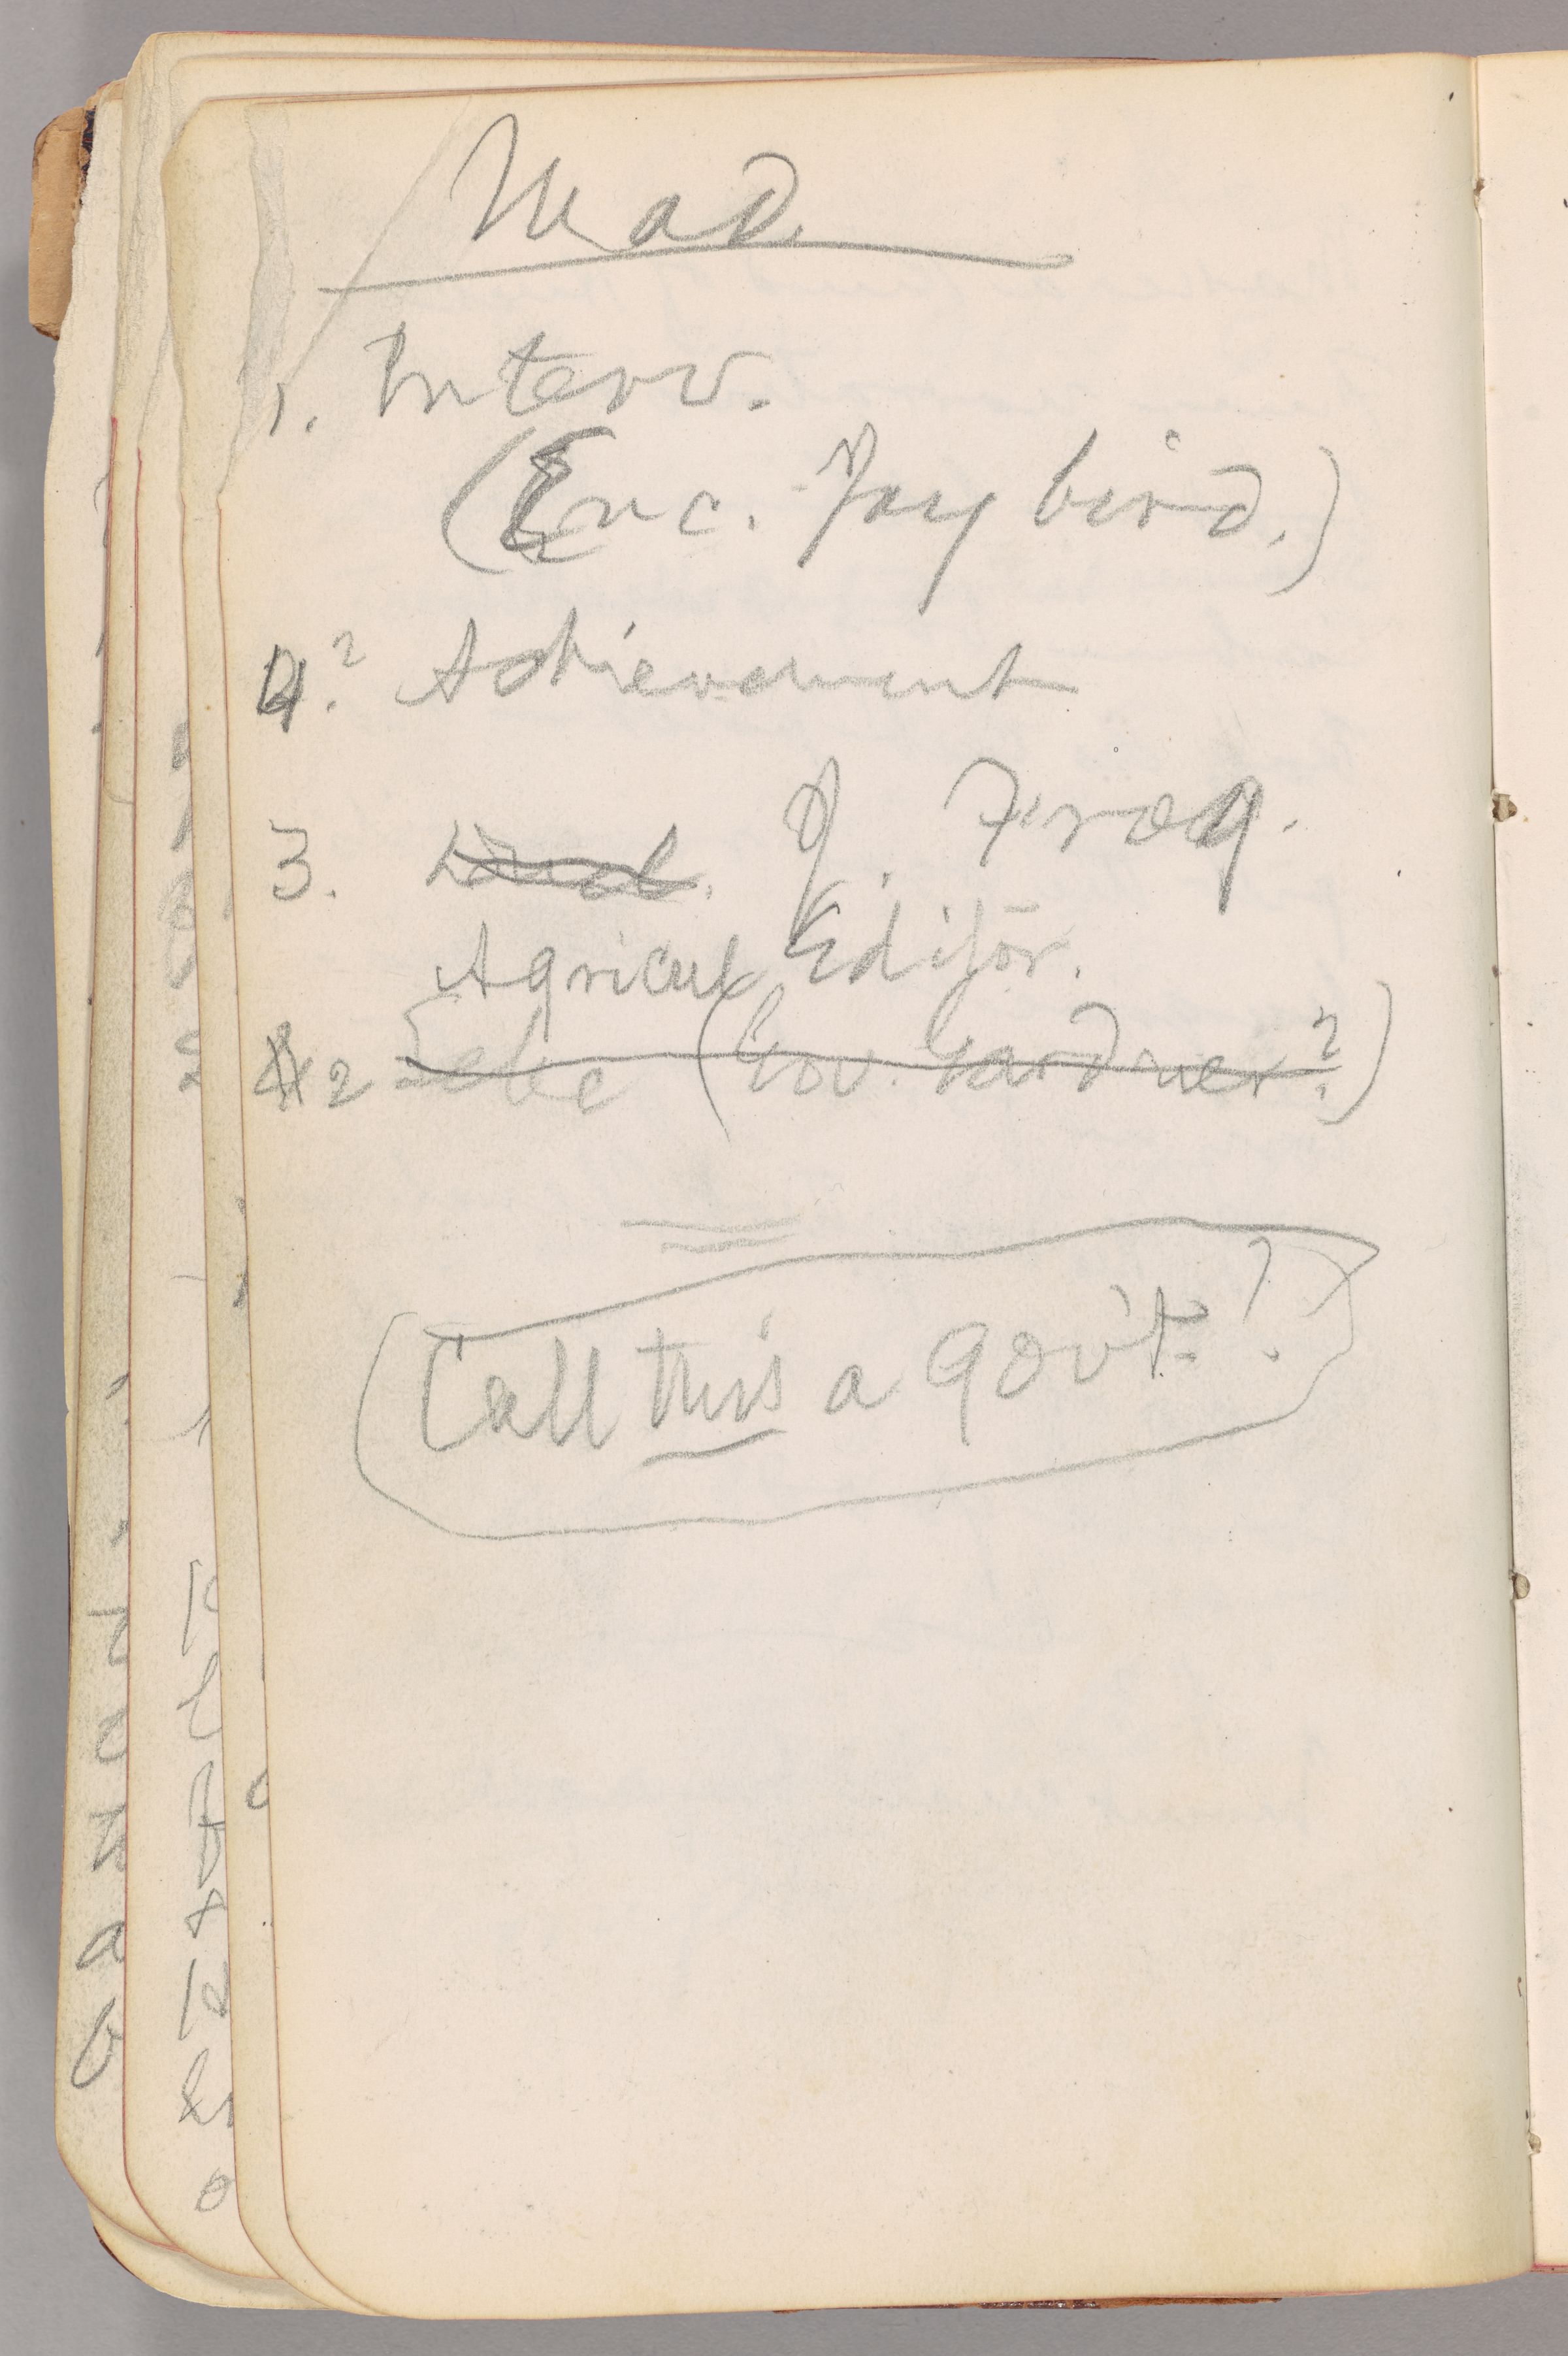 Mad.
1. Interv.
(Enc. Jay bird.)
4.? Achievement
3. J. Frog.
Agricul Editor.
2 (Gov. Gardner?)
Call this a gov't.?